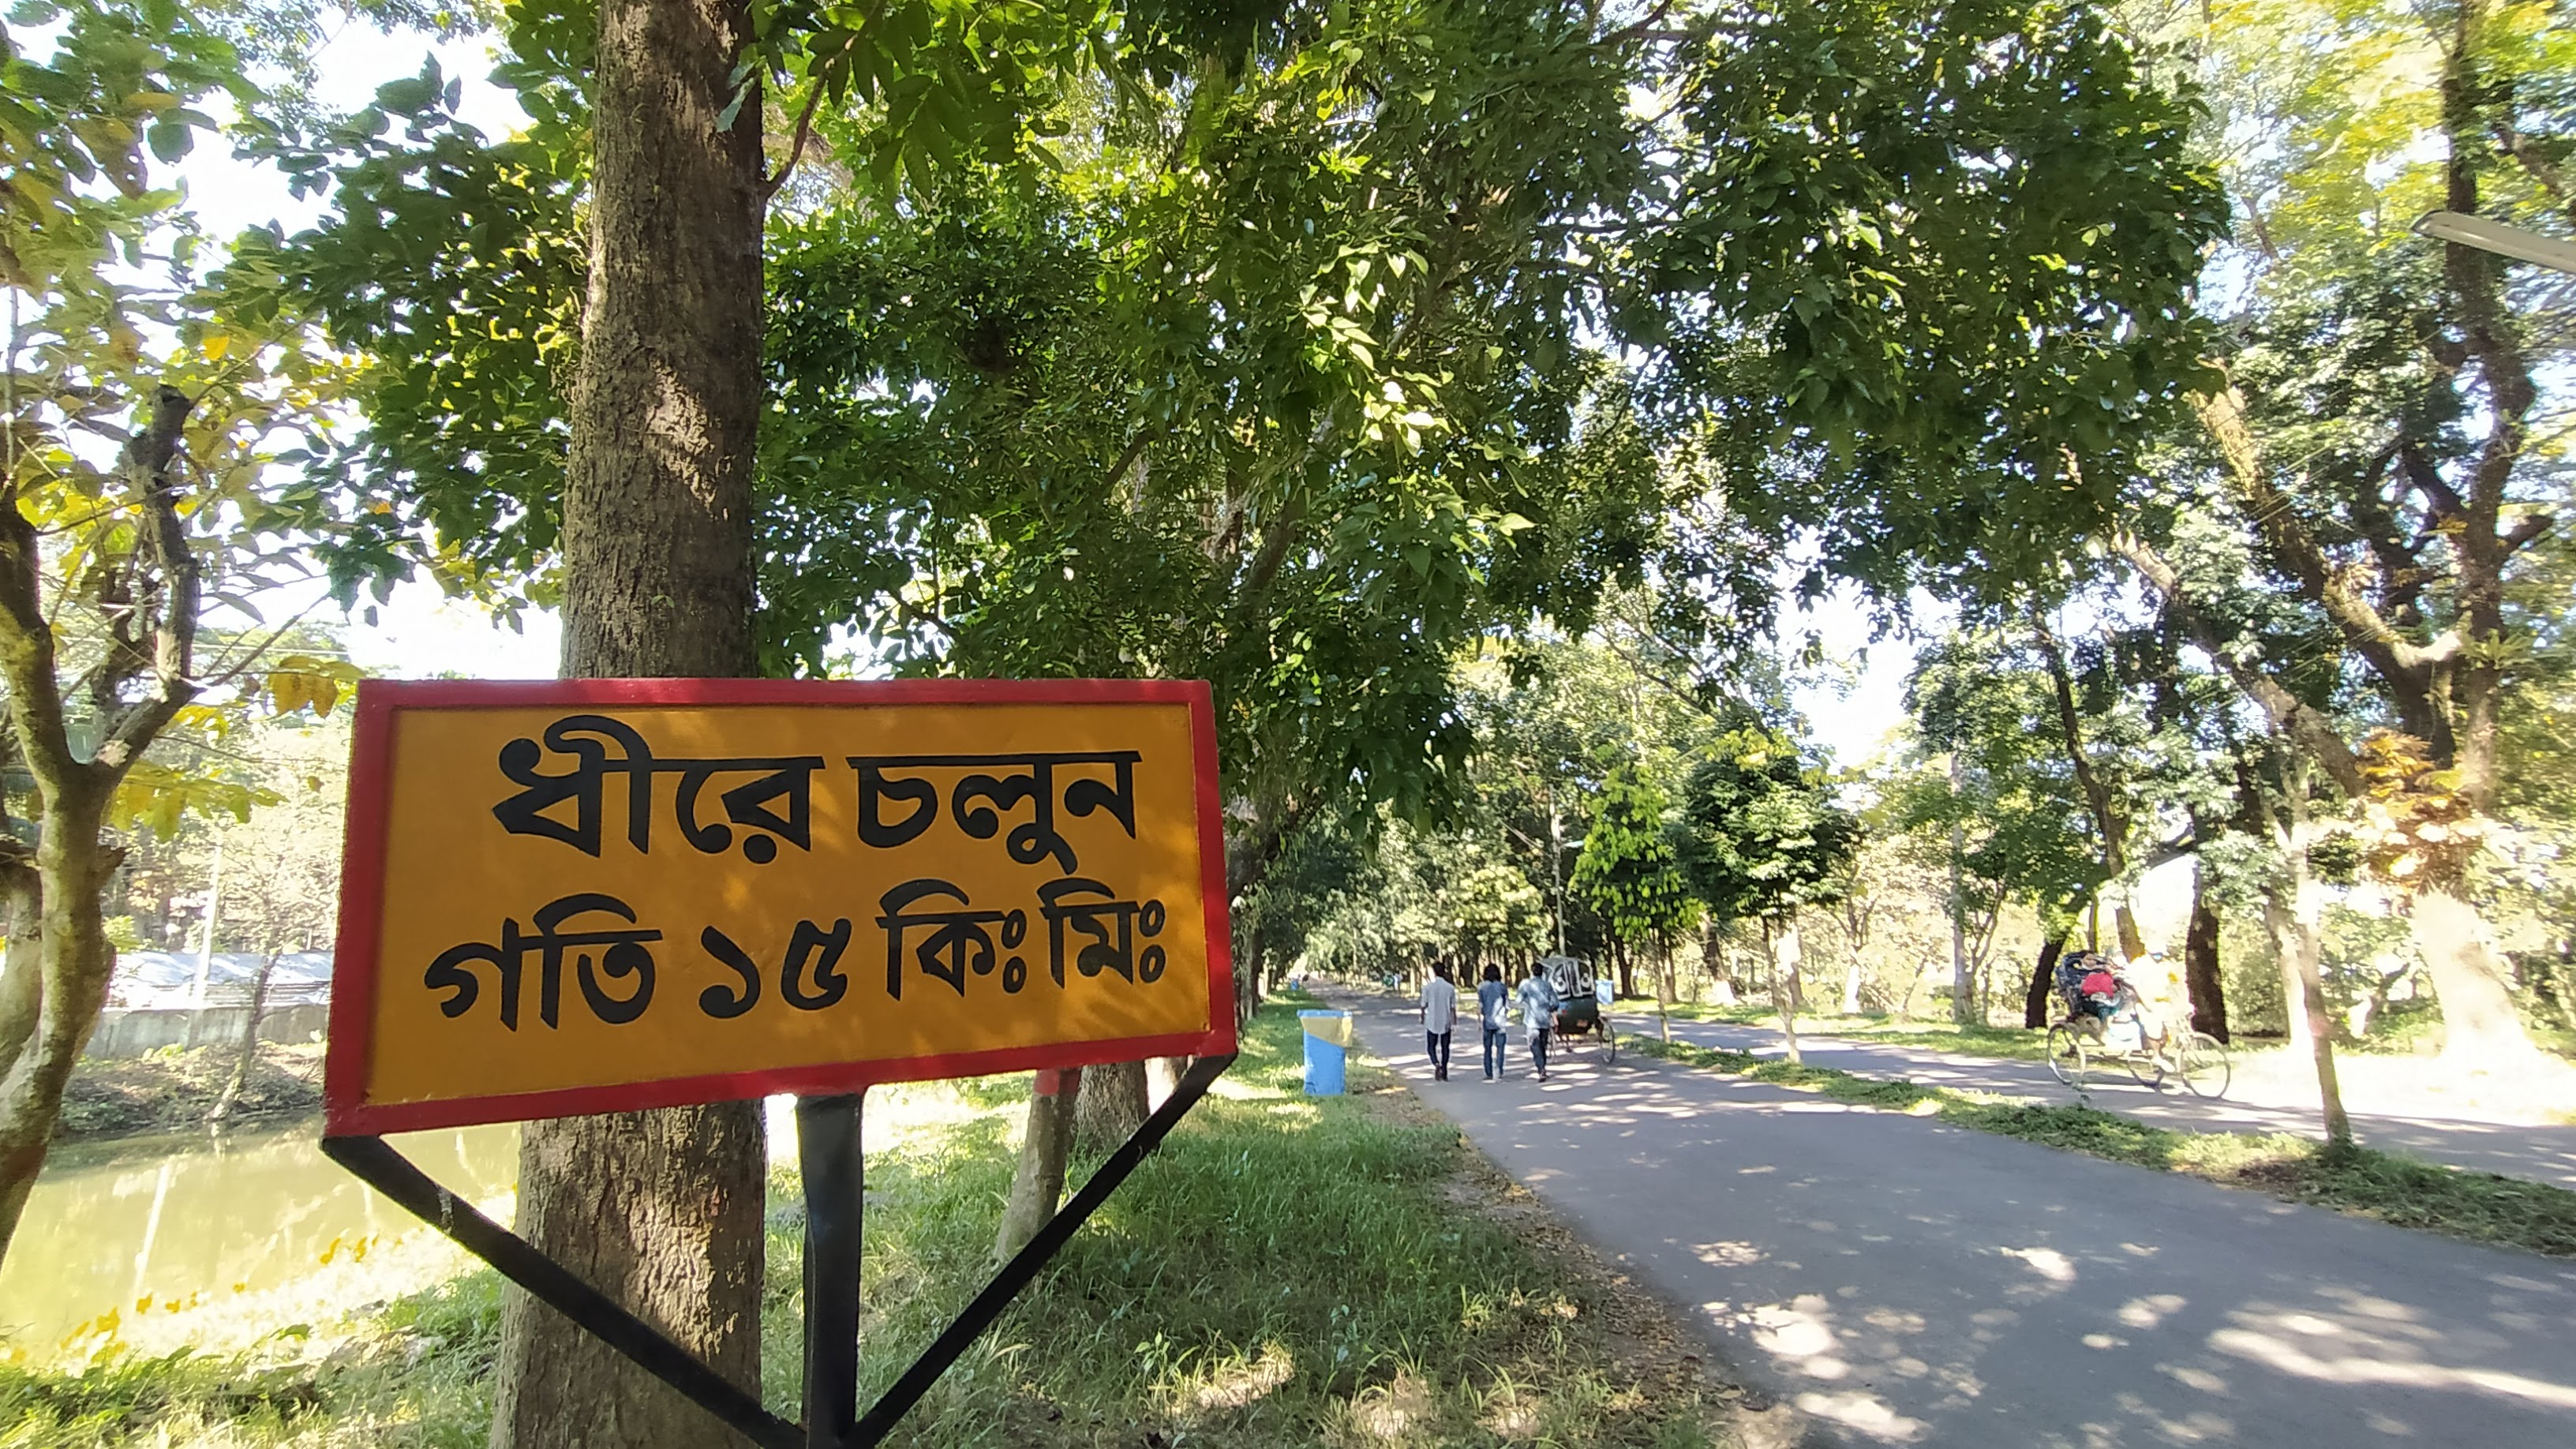 ধীরে চলুন
গতি ১৫ কিঃ মিঃ